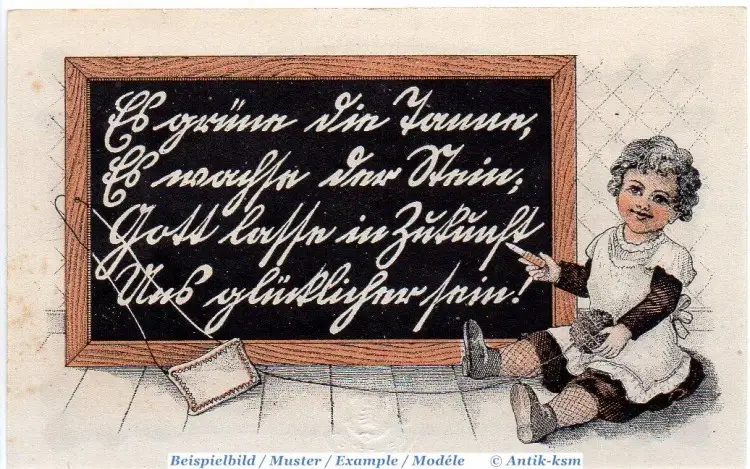 Es grüne die Tanne,
Es wachse der Stein;
Gott lasse in Zukunft
Uns glücklicher sein!
Beispielbild / Muster / Example / Modéle © Antik-ksm